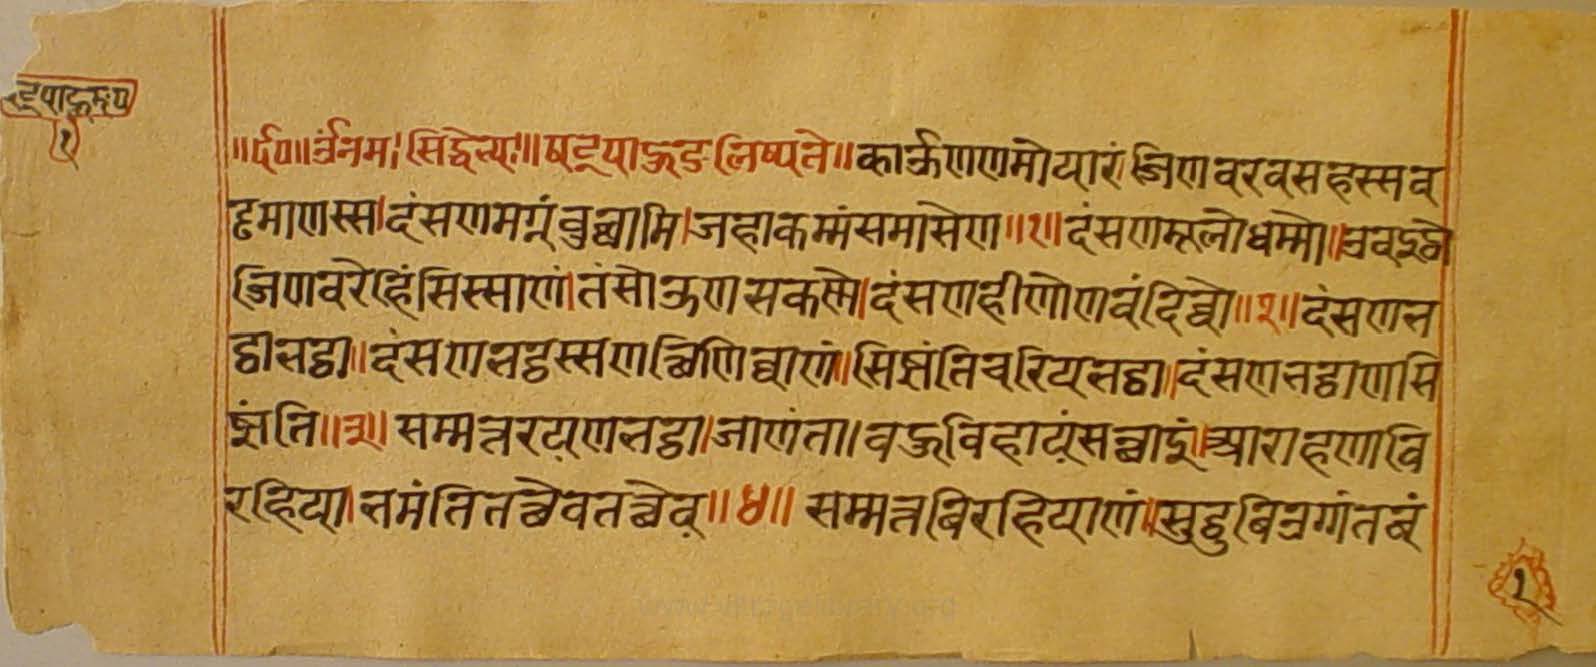 षट्पाहुड
१
॥र्द०॥ ॐनमः सिद्धेभ्यः॥ षट्पाहुड लिष्यते॥ काऊणणमोयारं जिणवरवसहस्सव
ड्ढमाणस्स।दंसणमग्गं वुच्छामि।जहाकम्मंसमासेण॥१॥दंसणमूलोधम्मो॥उवइट्ठो
जिणवरेहिंसिस्साणं।तंसोऊणसकण्णे।दंसणहीणोणवंदिव्वो॥२॥दंसणभ
ट्ठाभट्ठा॥दंसणभट्ठस्सणत्थिणिव्वाणं॥सिज्झंतिचरियभट्ठा॥दंसणभट्ठाणसि
ज्झंति॥३॥ सम्मत्तरयणभट्ठा।जाणंता।वहुविहायंसत्थाइं॥आराहणावि
रहिया।भमंतितत्थेवतत्थेव॥४॥ सम्मत्तविरहियाणं॥सुट्ठुविउग्गंतवं
१